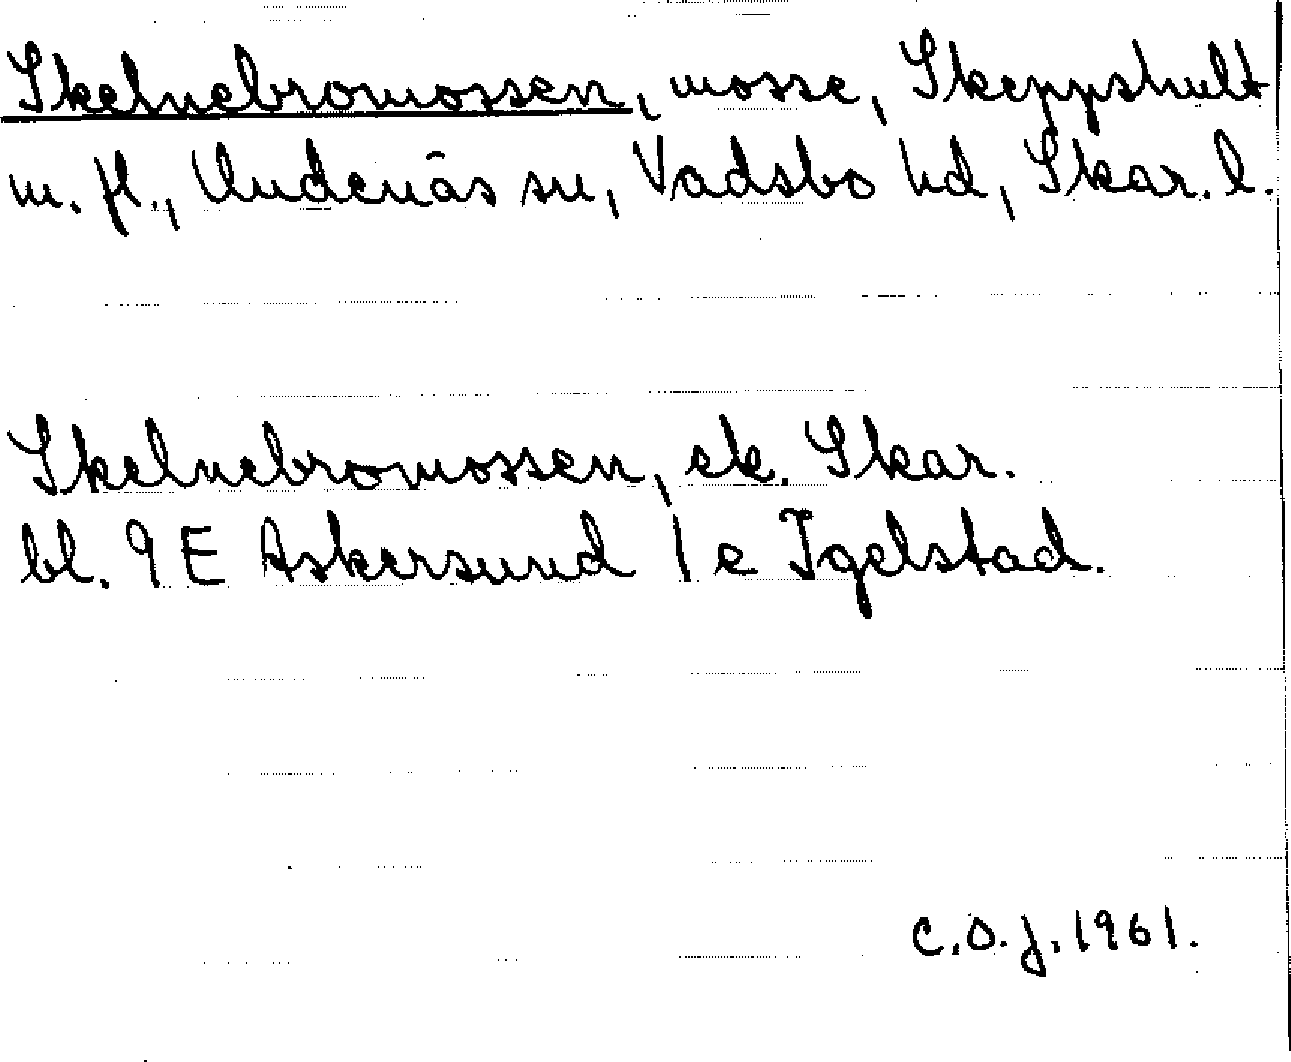 Skelnebromossen, mosse, Skeppshult
m. fl., Undenäs sn, Vadsbo hd, Skar. l.
Skelnebromossen, ek. Skar.
bl. 9 E Askersund 1 e Igelstad.
C.O.J. 1961.